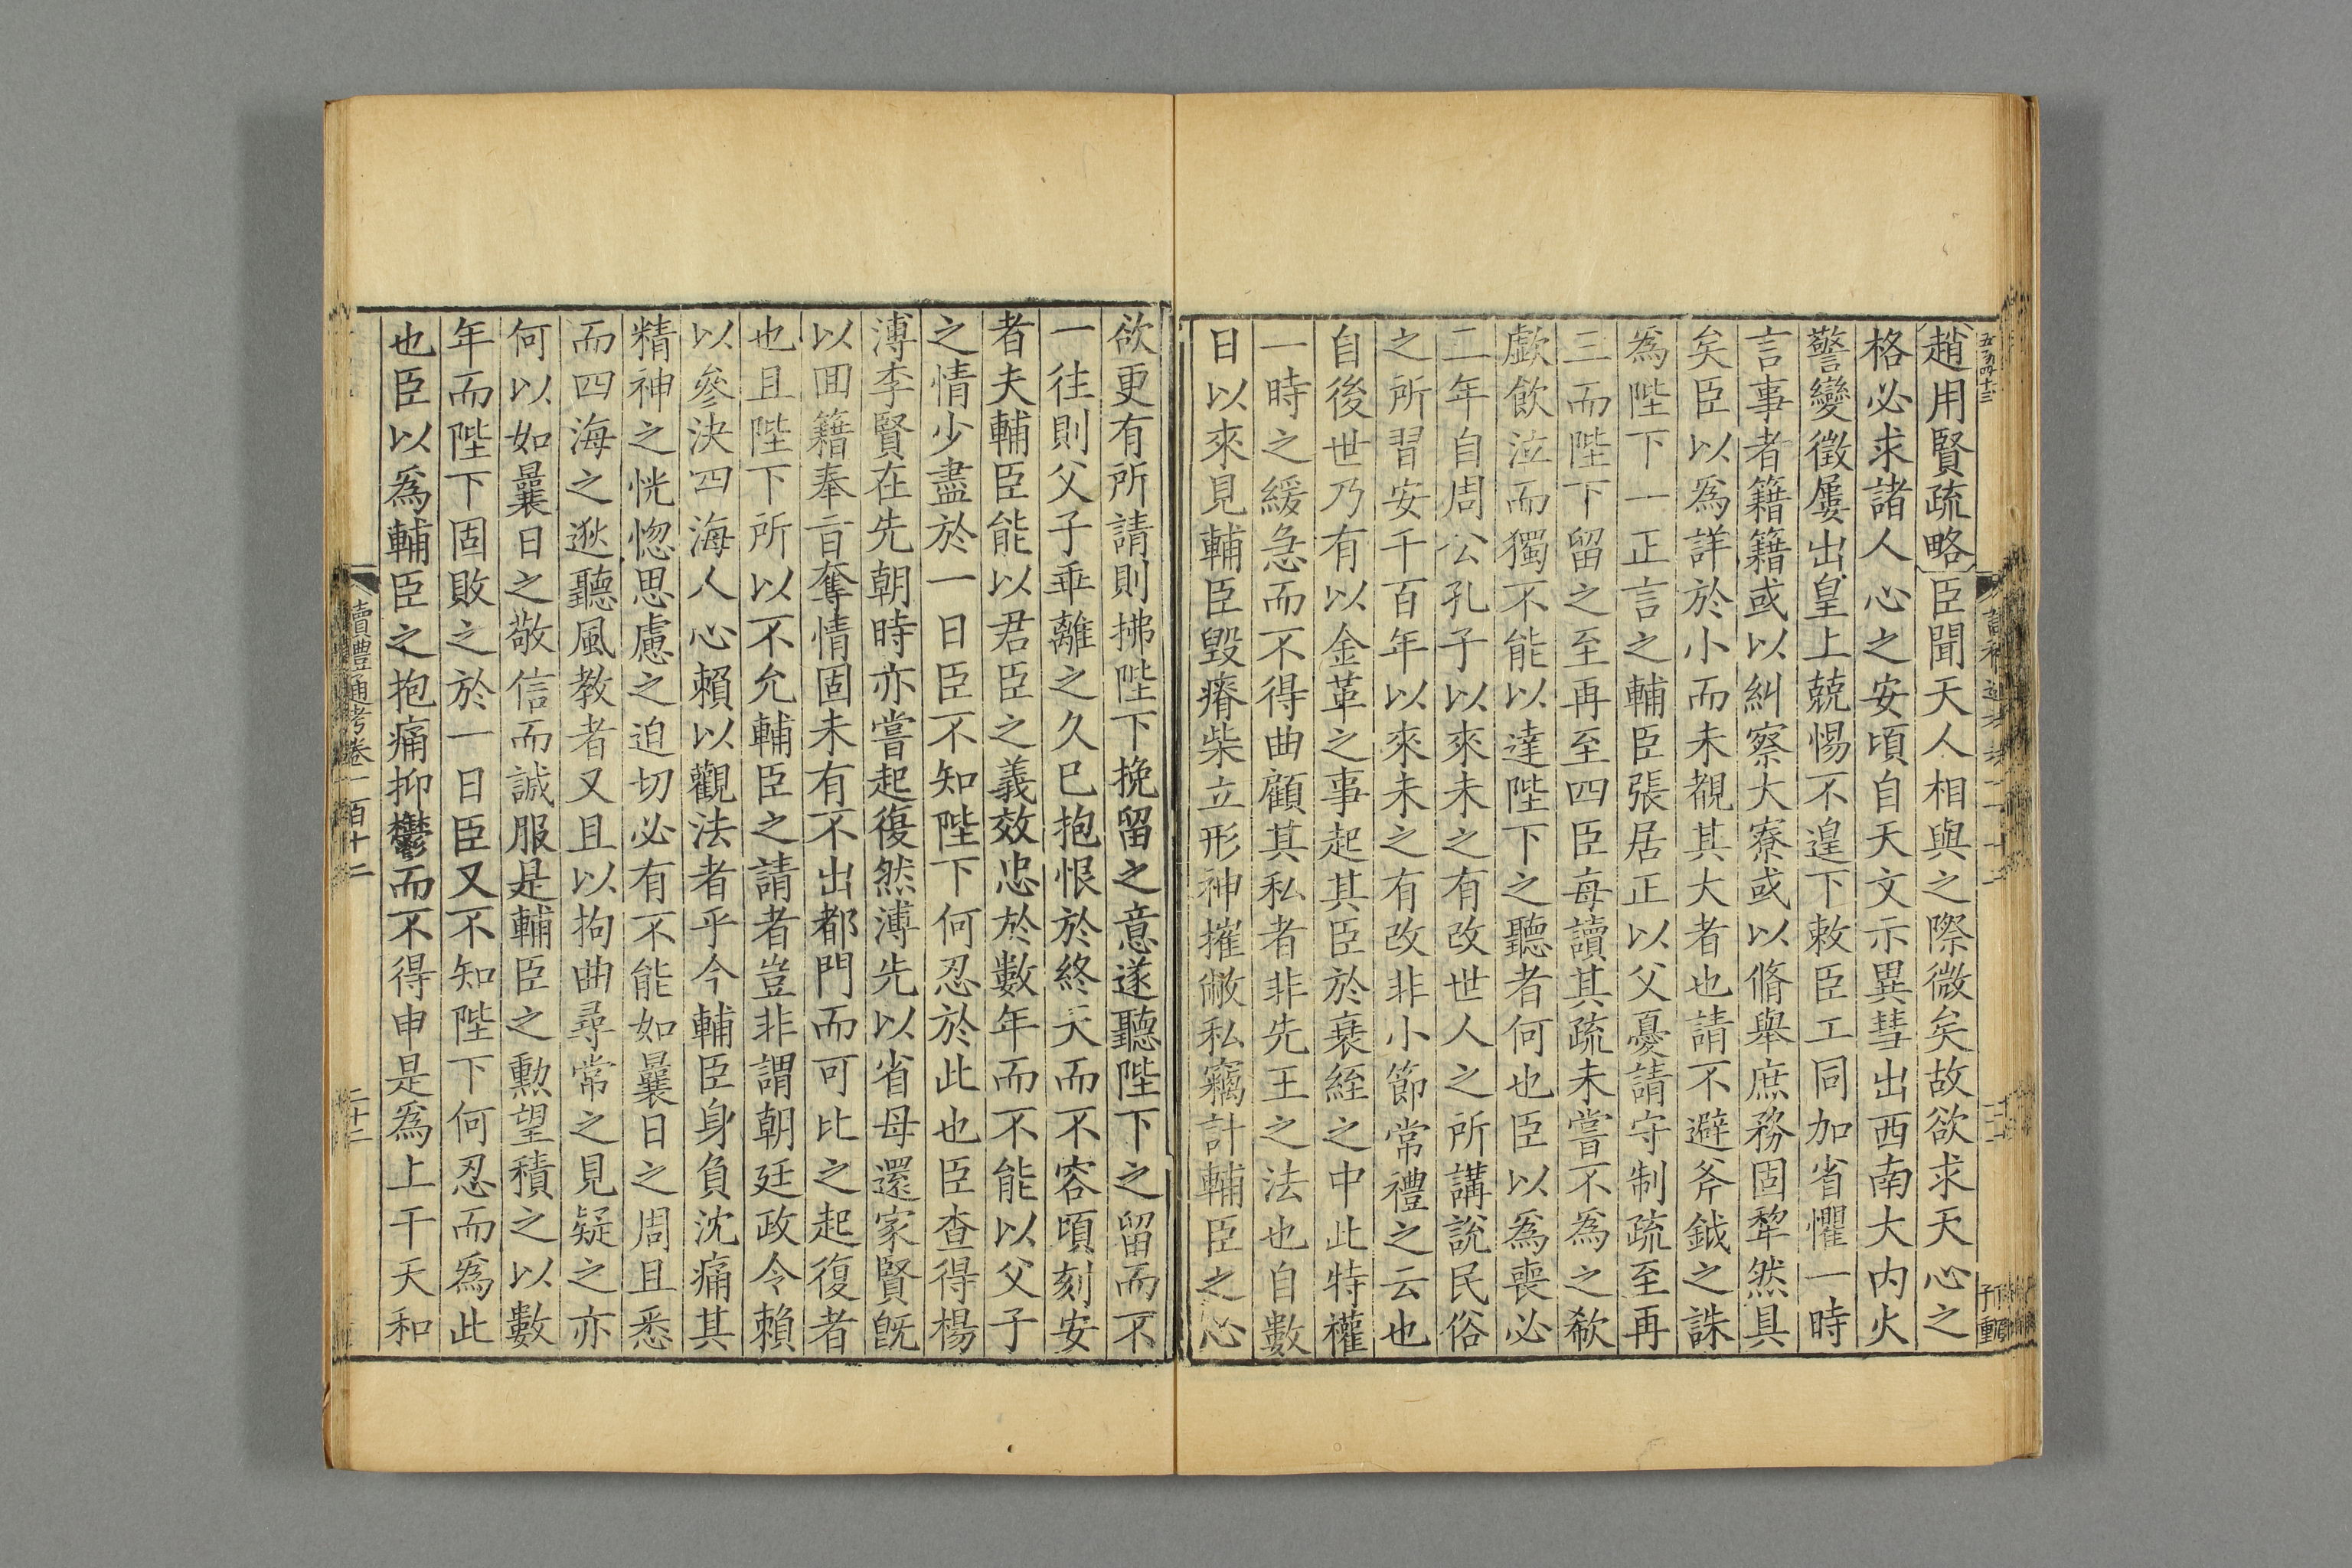 趙用賢疏略臣聞天人相與之際微矣故欲求天心之
格必求諸人心之安頃自天文示異彗出西南大内火
警變徵屢出皇上兢惕不遑下敕臣工同加省懼一時
言事者籍籍或以糾察大寮或以脩舉庶務固犂然具
矣臣以爲詳於小而未覩其大者也請不避斧鉞之誅
爲陛下一正言之輔臣張居正以父憂請守制疏至再
三而陛下留之至再至四臣每讀其疏未嘗不爲之欷
歔飲泣而獨不能以達陛下之聽者何也臣以爲喪必
二年自周公孔子以來未之有改世人之所講說民俗
之所習安千百年以來未之有改非小節常禮之云也
自後世乃有以金革之事起其臣於衰絰之中此特權
一時之緩急而不得曲顧其私者非先王之法也自數
日以來見輔臣毀瘠柴立形神摧敝私竊計輔臣之心
欲更有所請則拂陛下挽留之意遂聽陛下之留而不
一往則父子乖離之久已抱恨於終天而不容頃刻安
者夫輔臣能以君臣之義效忠於數年而不能以父子
之情少盡於一日臣不知陛下何忍於此也臣查得楊
溥李賢在先朝時亦嘗起復然溥先以省母還家賢旣
以囬籍奉旨奪情固未有不出都門而可比之起復者
也且陛下所以不允輔臣之請者豈非謂朝廷政令賴
以參決四海人心賴以觀法者乎今輔臣身負沈痛其
精神之恍惚思慮之迫切必有不能如曩日之周且悉
而四海之逖聽風教者又且以拘曲尋常之見疑之亦
何以如曩日之敬信而誠服是輔臣之勲望積之以數
年而陛下固敗之於一日臣又不知陛下何忍而爲此
也臣以爲輔臣之抱痛抑鬱而不得申是爲上干天和
讀禮通考卷一百十二
二十二